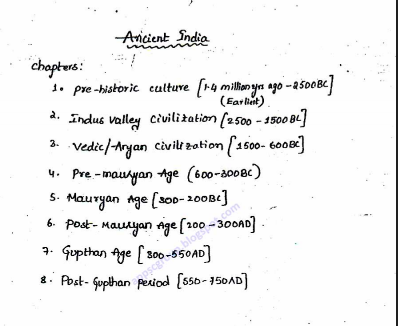 Ancient India
chapters:
1. Pre-historic culture [1.4 million yrs ago - 2500BC]
(Earlist)
2. Indus Valley Civilization [2500 - 1500 BC]
3. Vedic/Aryan civilization [1500 - 600BC]
4. Pre-mauryan Age (600-300BC)
5. Mauryan Age [300-200BC]
6. Post-Mauryan Age [200 - 300AD].
7. Gupthan Age [300-550AD]
8. Post-Gupthan Period [550-750AD]